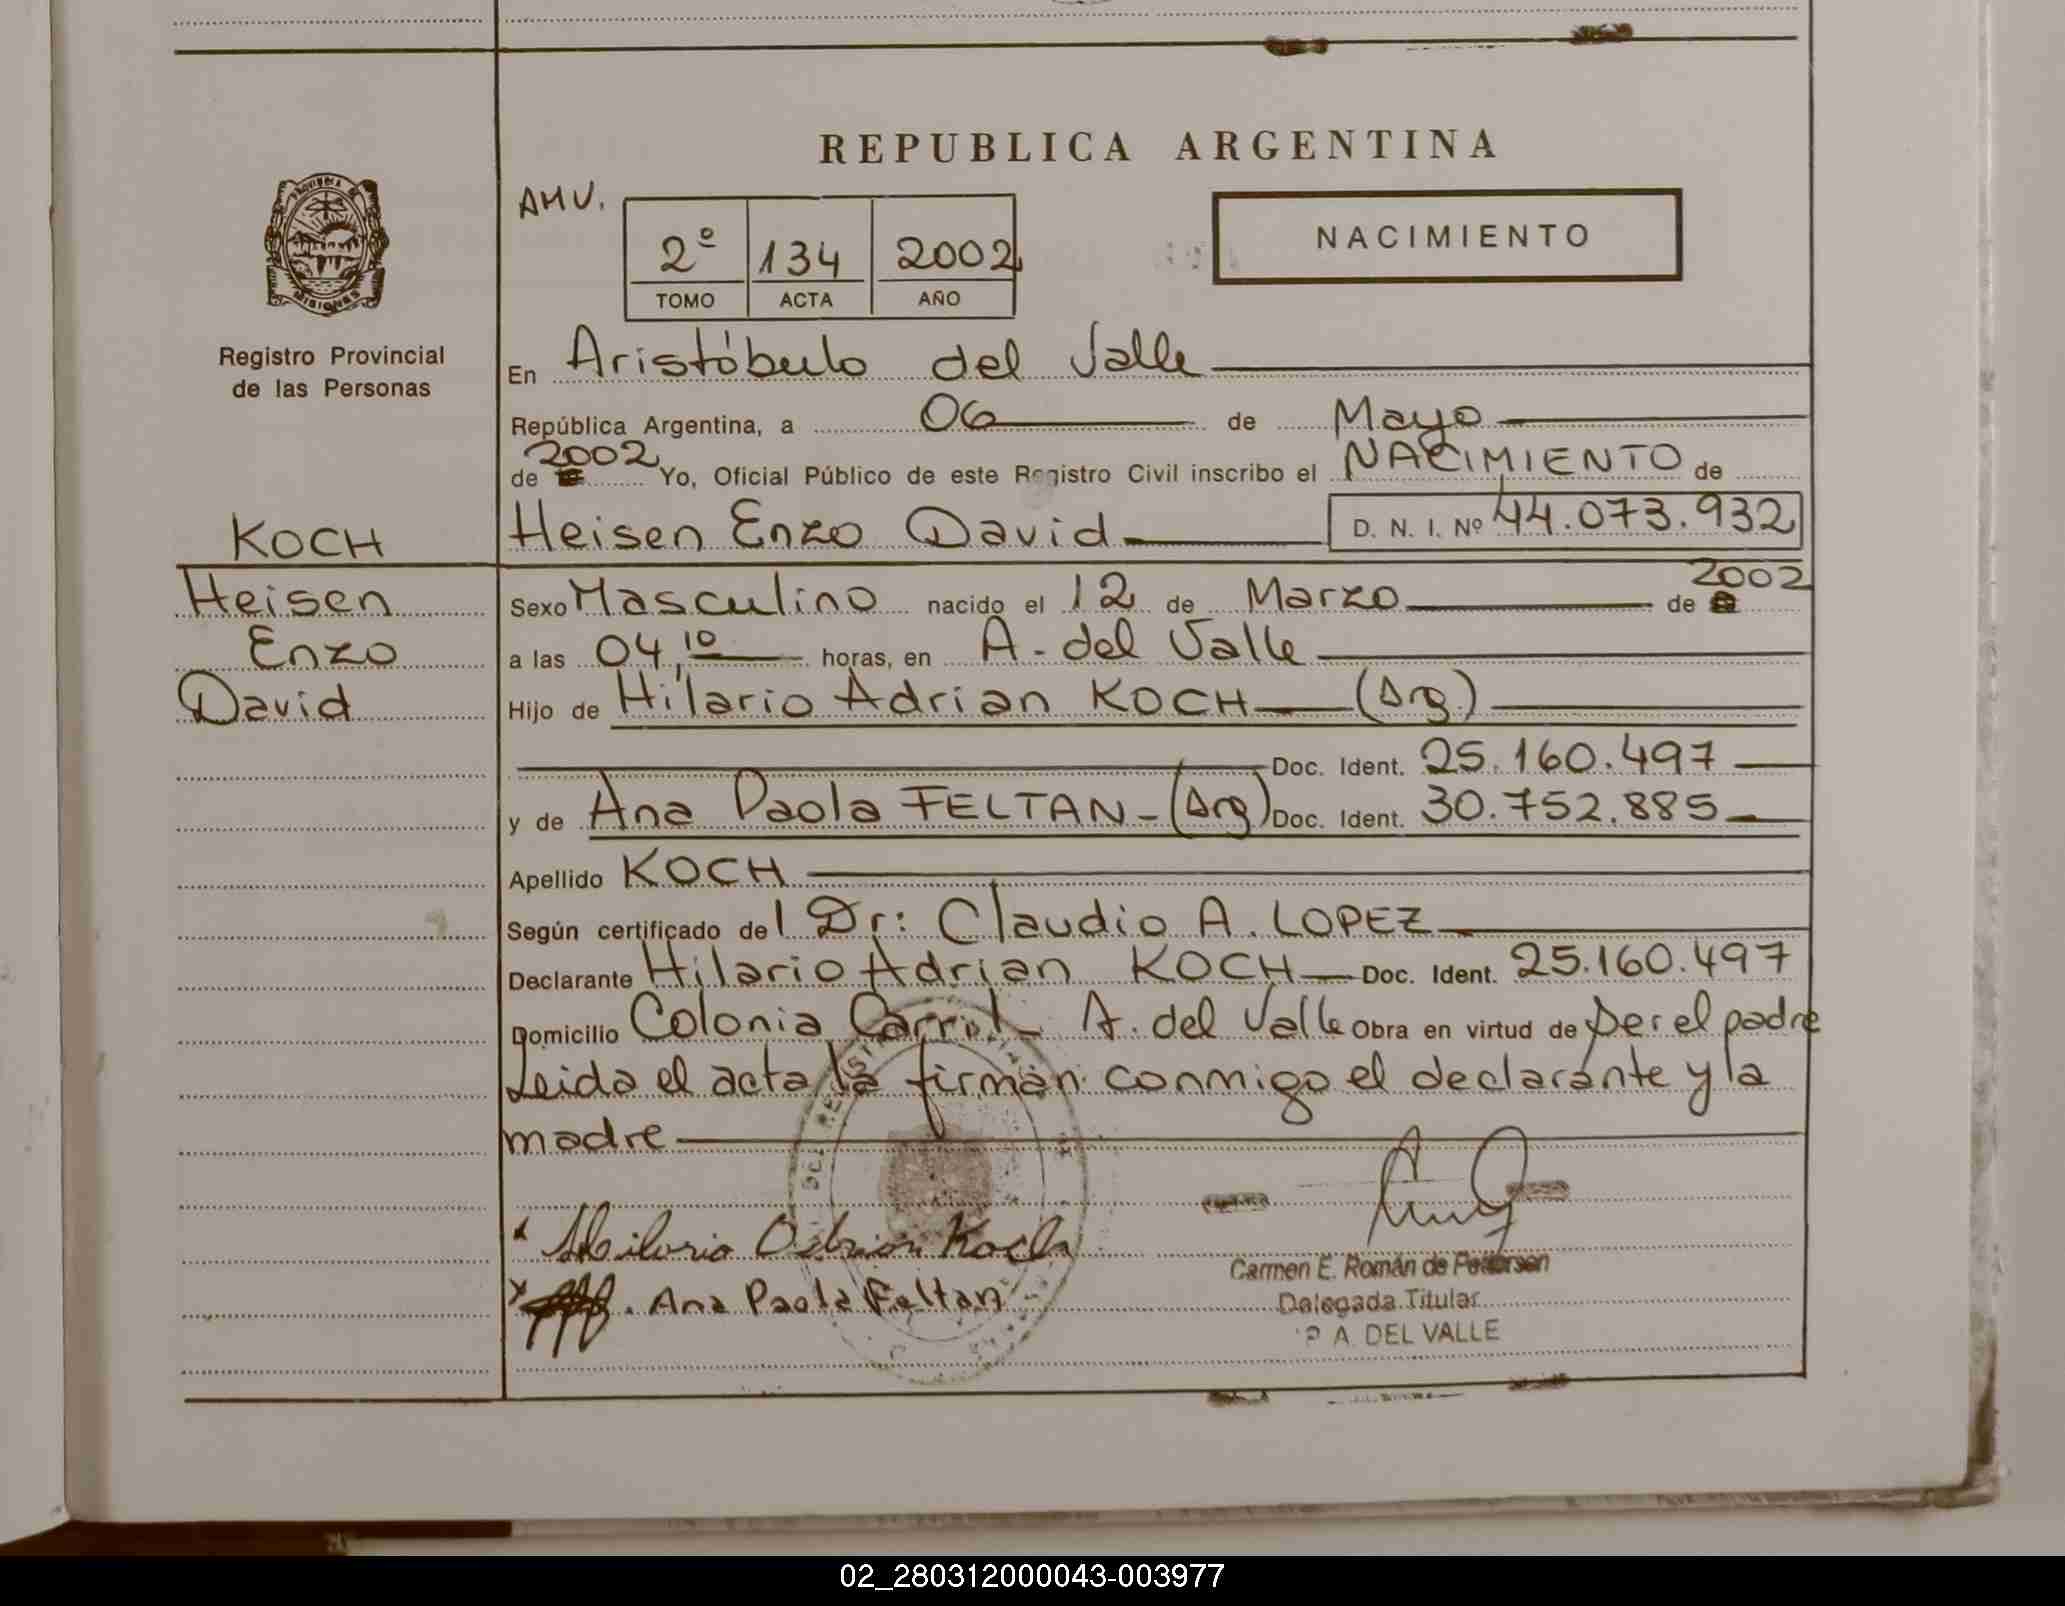 REPUBLICA ARGENTINA
AMV.
2º 134 2002
TOMO ACTA AÑO
NACIMIENTO
PROVINCIA DE MISIONES
Registro Provincial
de las Personas
En Aristóbulo del Valle
República Argentina, a 06 de Mayo
de 2002 Yo, Oficial Público de este Registro Civil inscribo el NACIMIENTO de
Heisen Enzo David D. N. I. Nº 44.073.932
KOCH
Heisen
Enzo
David
Sexo Masculino nacido el 12 de Marzo de 2002
a las 04,10 horas, en A. del Valle
Hijo de Hilario Adrian KOCH (Arg.)
Doc. Ident. 25.160.497
y de Ana Paola FELTAN - (Arg) Doc. Ident. 30.752.885
Apellido KOCH
Según certificado del Dr: Claudio A. LOPEZ
Declarante Hilario Adrian KOCH Doc. Ident. 25.160.497
Domicilio Colonia A. del Valle Obra en virtud de Ser el padre
Leida el acta la firman conmigo el declarante y la
madre
Koch
Ana Paola Feltan
Carmen E. Román de Petterson
Delegada Titular
A. DEL VALLE
02_280312000043-003977